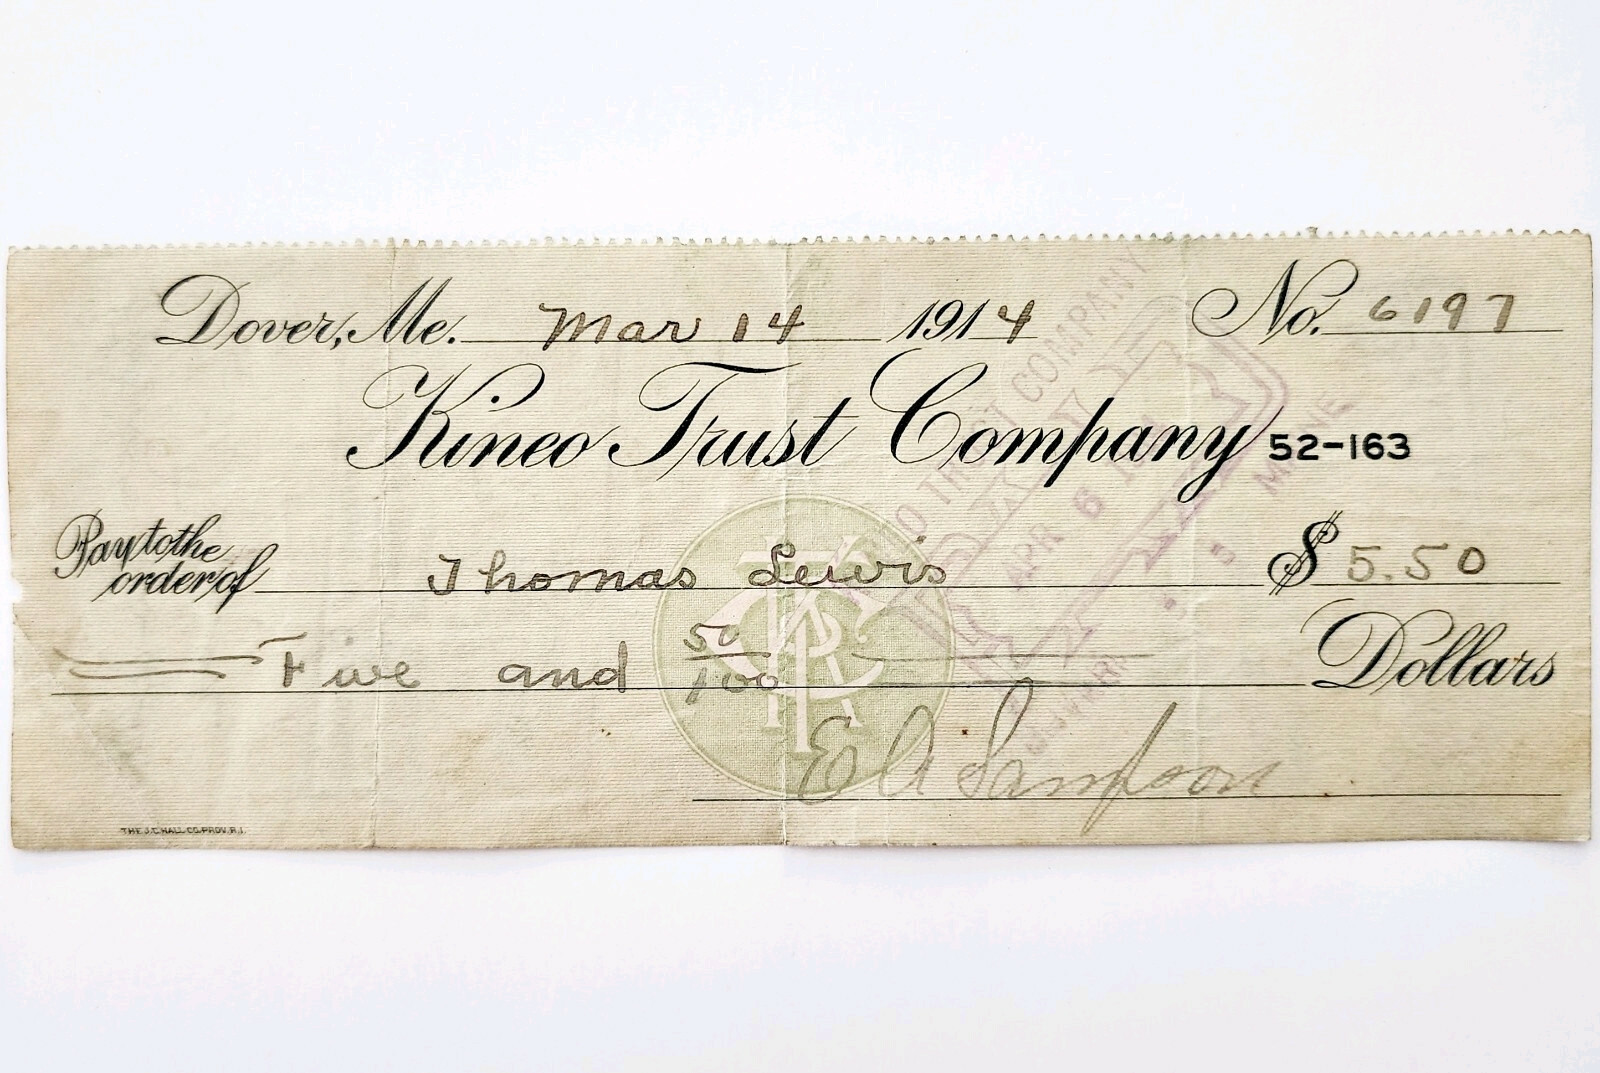 Dover, Me. Mar 14 1914 No. 6197
Kineo Trust Company 52-163
Pay to the
order of Thomas Lewis $ 5.50
Five and 50/100 Dollars
E A Sampson
THE J.C. HALL CO. PROV. R.I.
KINEO TRUST COMPANY
PAID
APR 6
MAINE